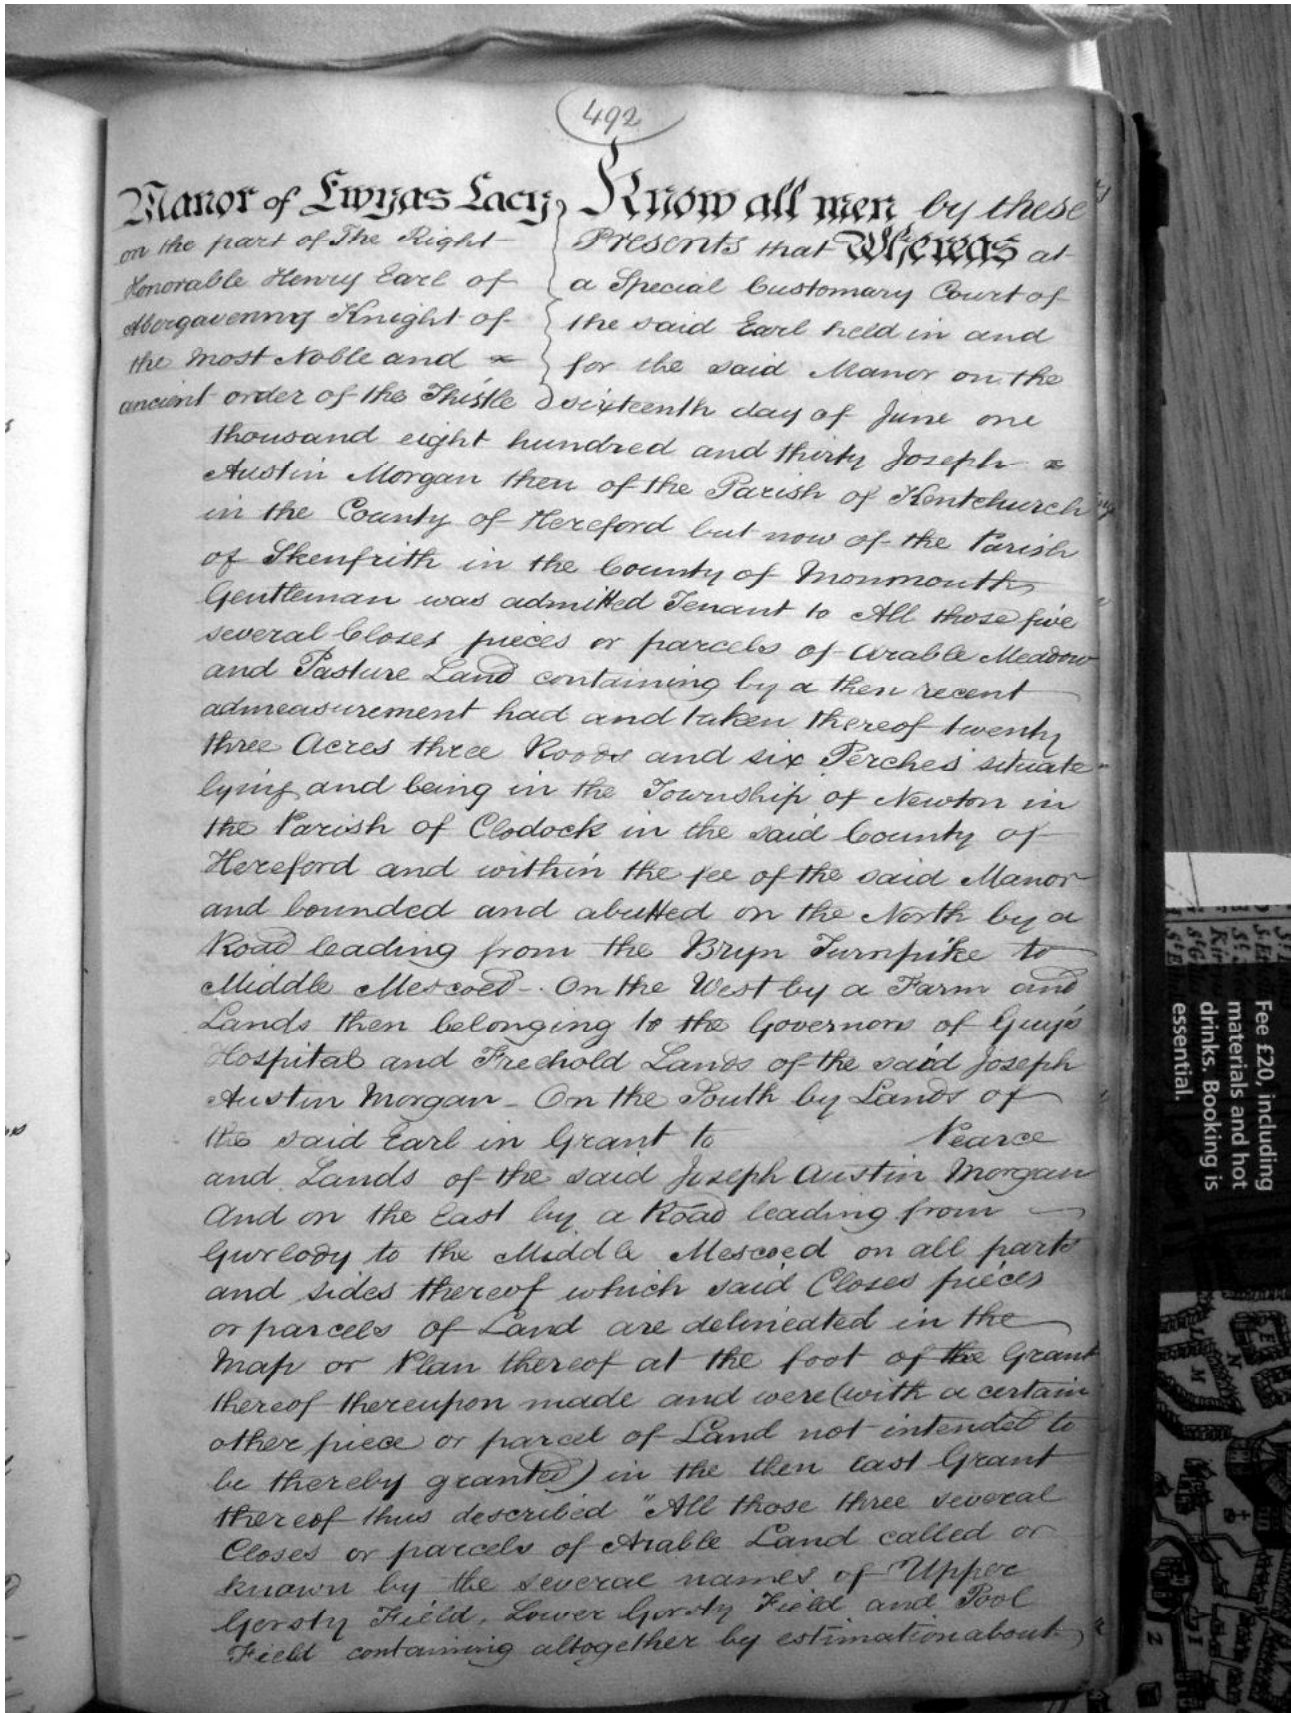 492
Manor of Ewyas Lacy,
on the part of The Right
Honorable Henry Earl of
Abergavenny Knight of
the Most Noble and
ancient order of the Thistle
Know all men by these
Presents that Whereas at
a Special Customary Court of
the said Earl held in and
for the said Manor on the
sixteenth day of June one
thousand eight hundred and thirty Joseph
Austin Morgan then of the Parish of Kentchurch
in the County of Hereford but now of the Parish
of Skenfrith in the County of Monmouth
Gentleman was admitted Tenant to All those five
several Closes pieces or parcels of Arable Meadow
and Pasture Land containing by a then recent
admeasurement had and taken thereof twenty
three Acres three Roods and six Perches situate
lying and being in the Township of Newton in
the Parish of Clodock in the said County of
Hereford and within the fee of the said Manor
and bounded and abutted on the North by a
Road leading from the Bryn Turnpike to
Middle Mescoed - On the West by a Farm and
Lands then belonging to the Governors of Guy's
Hospital and Freehold Lands of the said Joseph
Austin Morgan - On the South by Lands of
the said Earl in Grant to Pearce
and Lands of the said Joseph Austin Morgan
And on the East by a Road leading from
Gwrlody to the Middle Mescoed on all parts
and sides thereof which said Closes pieces
or parcels of Land are delineated in the
Map or Plan thereof at the foot of the Grant
thereof thereupon made and were (with a certain
other piece or parcel of Land not intended to
be thereby granted) in the then last Grant
thereof thus described "All those three several
Closes or parcels of Arable Land called or
known by the several names of Upper
Gorsty Field, Lower Gorsty Field and Pool
Field containing altogether by estimation about
Fee £20, including
materials and hot
drinks. Booking is
essential.